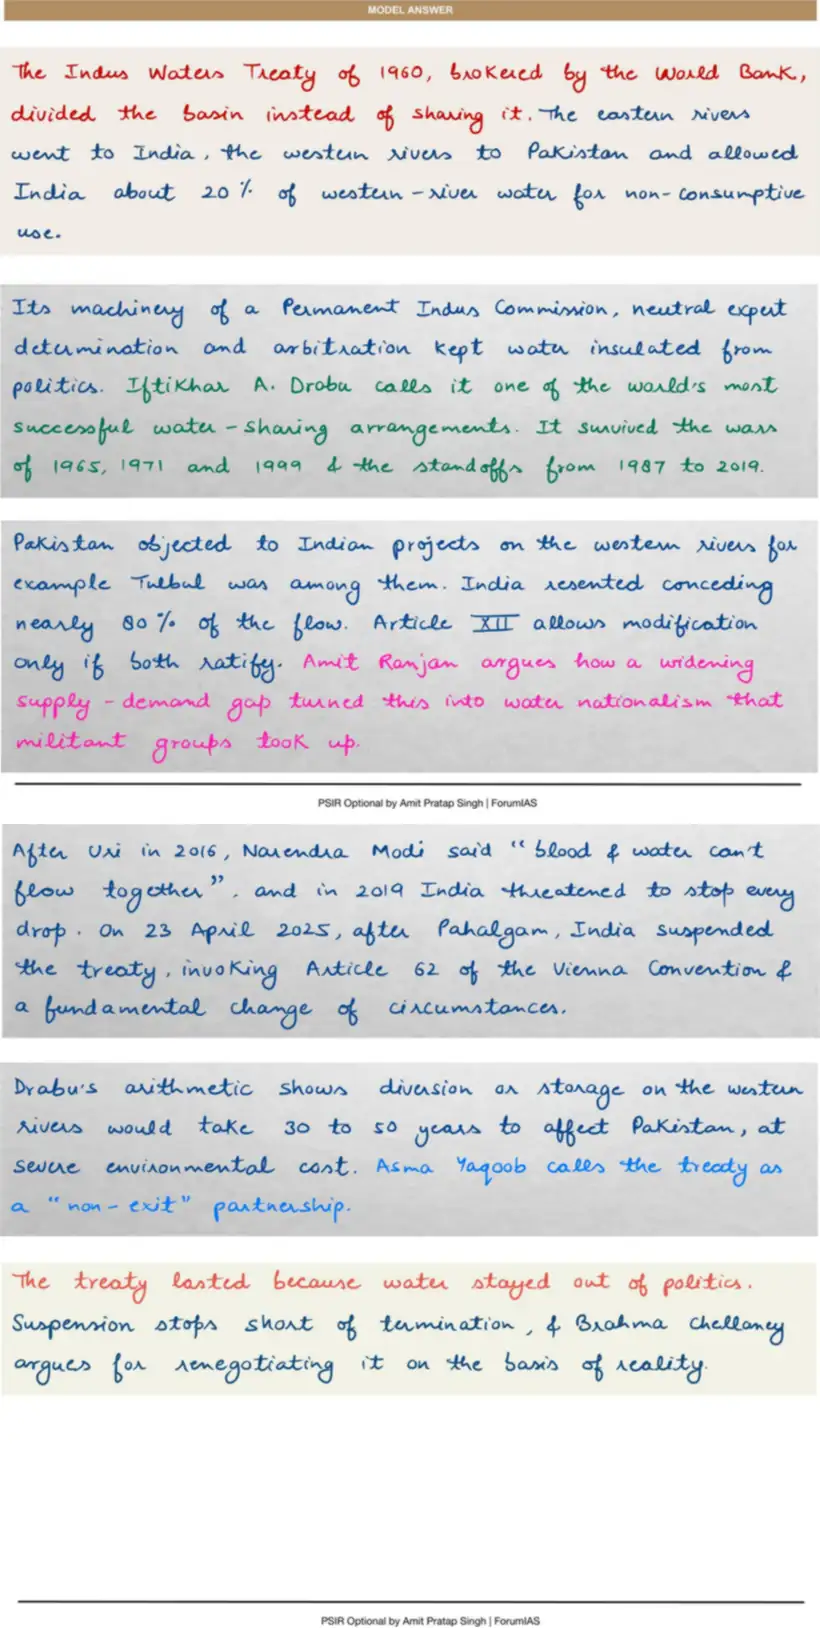 MODEL ANSWER
The Indus Waters Treaty of 1960, brokered by the World Bank,
divided the basin instead of sharing it. The eastern rivers
went to India, the western rivers to Pakistan and allowed
India about 20% of western-river water for non-consumptive
use.
Its machinery of a Permanent Indus Commission, neutral expert
determination and arbitration kept water insulated from
politics. Iftikhar A. Drabu calls it one of the world's most
successful water-sharing arrangements. It survived the wars
of 1965, 1971 and 1999 & the standoffs from 1987 to 2019.
Pakistan objected to Indian projects on the western rivers for
example Tulbul was among them. India resented conceding
nearly 80% of the flow. Article XII allows modification
only if both ratify. Amit Ranjan argues how a widening
supply-demand gap turned this into water nationalism that
militant groups took up.
PSIR Optional by Amit Pratap Singh | ForumIAS
After Uri in 2016, Narendra Modi said "blood & water can't
flow together", and in 2019 India threatened to stop every
drop. On 23 April 2025, after Pahalgam, India suspended
the treaty, invoking Article 62 of the Vienna Convention &
a fundamental change of circumstances.
Drabu's arithmetic shows diversion or storage on the western
rivers would take 30 to 50 years to affect Pakistan, at
severe environmental cost. Asma Yaqoob calls the treaty as
a "non-exit" partnership.
The treaty lasted because water stayed out of politics.
Suspension stops short of termination, & Brahma Chellaney
argues for renegotiating it on the basis of reality.
PSIR Optional by Amit Pratap Singh | ForumIAS